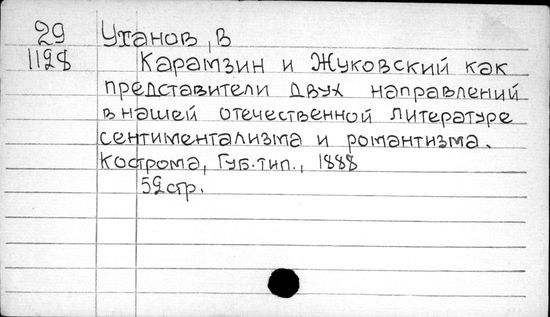 29 Уханов, В
1128 Карамзин и Жуковский как
представители двух направлений
в нашей отечественной литературе
сентиментализма и романтизма.
Кострома, Губ. тип., 1888
52 стр.